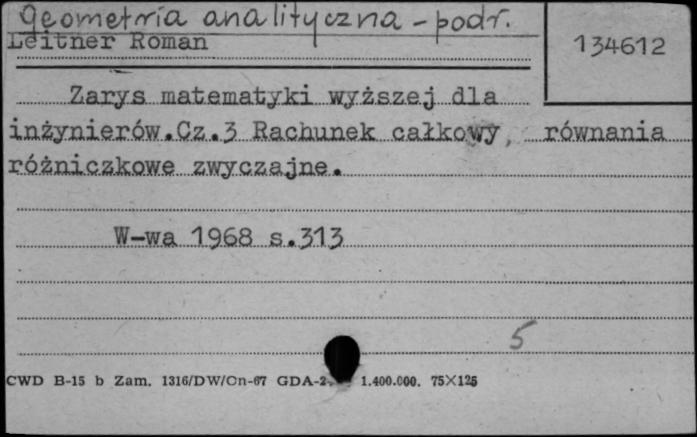 Geometria analityczna - podr.
Leitner Roman
134612
Zarys matematyki wyższej dla
inżynierów.Cz.3 Rachunek całkowy, równania
różniczkowe zwyczajne.
W-wa 1968 s.313
5
CWD B-15 b Zam. 1316/DW/On-67 GDA-2 1.400.000. 75×125